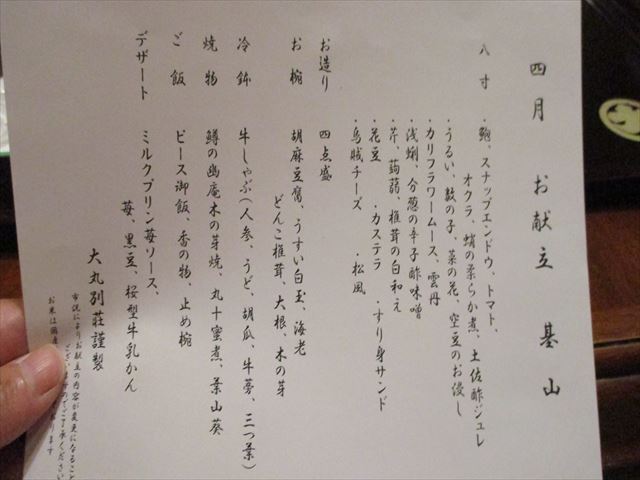 四月 お献立 基山
八寸 ・鮑、スナップエンドウ、トマト、
オクラ、蛸の柔らか煮、土佐酢ジュレ
・うるい、数の子、菜の花、空豆のお浸し
・カリフラワームース、雲丹
・浅蜊、分葱の辛子酢味噌
・芹、蒟蒻、椎茸の白和え
・花豆 ・カステラ ・すり身サンド
・烏賊チーズ ・松風
お造り 四点盛
お椀 胡麻豆腐、うすい白玉、海老
どんこ椎茸、大根、木の芽
冷鉢 牛しゃぶ(人参、うど、胡瓜、牛蒡、三つ葉)
焼物 鱒の幽庵木の芽焼、丸十蜜煮、葉山葵
ご飯 ピース御飯、香の物、止め椀
デザート ミルクプリン苺ソース、
苺、黒豆、桜型牛乳かん
大丸別荘謹製
市況によりお献立の内容が変更になること
ございますのでご了承ください
お米は国産 おります